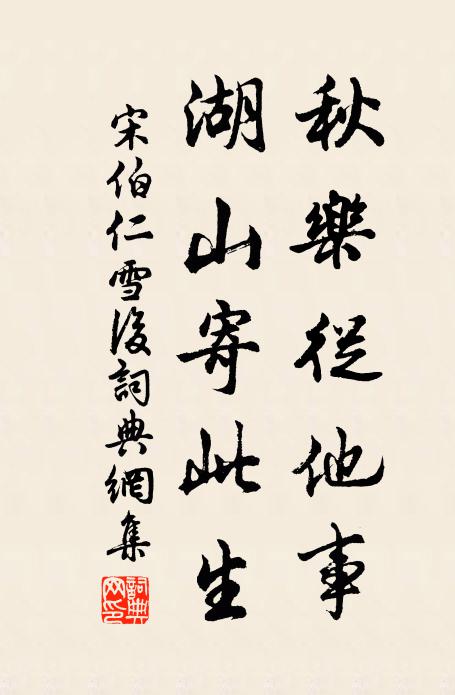 秋樂從他事
湖山寄此生
宋伯仁雪後詞典網集
詞典網印